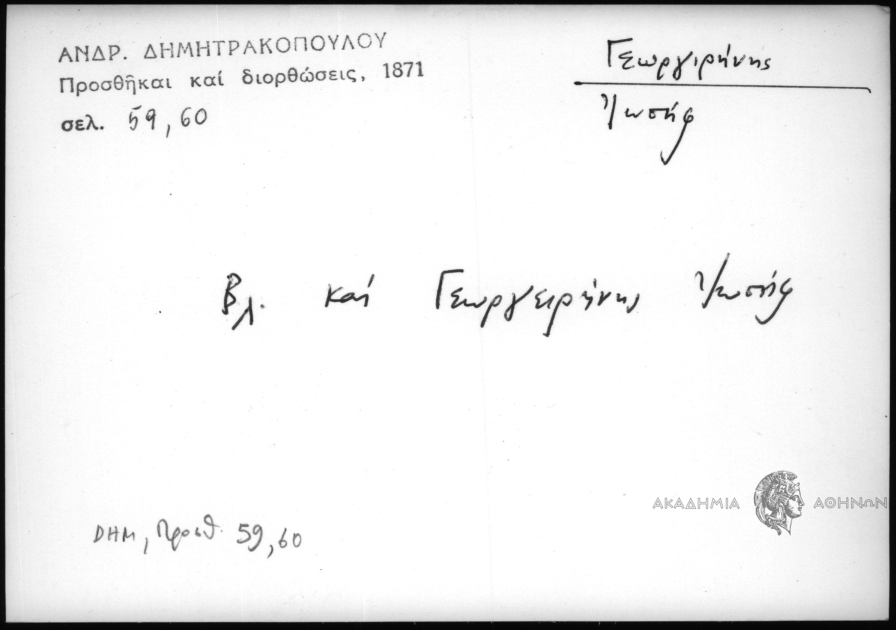 ΑΝΔΡ. ΔΗΜΗΤΡΑΚΟΠΟΥΛΟΥ
Προσθῆκαι καί διορθώσεις, 1871
σελ. 59, 60
Γεωργιρήνης
Ἰωσήφ
Βλ. καί Γεωργειρήνης Ἰωσήφ
ΔΗΜ, Προσθ. 59, 60
ΑΚΑΔΗΜΙΑ ΑΘΗΝΩΝ